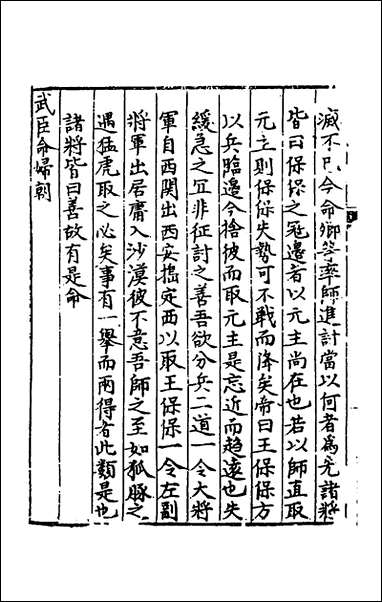 滅不已今命卿等率師進討當以何者爲先諸將
皆曰保保之寇邊者以元主尚在也若以師直取
元主則保保失勢可不戰而降矣帝曰王保保方
以兵臨邊今捨彼而取元主是忘近而趨遠也失
緩急之宜非征討之善吾欲分兵二道一令大將
軍自西関出西安搗定西以取王保保一令左副
將軍出居庸入沙漠彼不意吾師之至如狐豚之
遇猛虎取之必矣事有一舉而兩得者此類是也
諸將皆曰善故有是命
武臣命婦朝